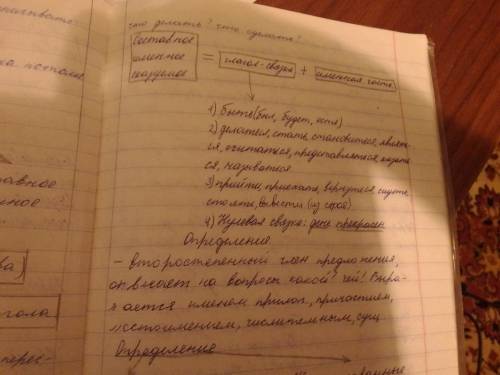 что делать? что сделать?
Составное именное сказуемое = глагол-связка + именная часть
1) быть (был, будет, есть)
2) делаться, стать, становиться, являть-
ся, считаться, представляться, казать
ся, называться
3) прийти, приехать, вернуться, сидеть
стоять, вывести (из строя)
4) Нулевая связка: день прекрасен
Определение
- второстепенный член предложения,
отвечает на вопросы какой? чей? Выра-
жается именем прилаг, причастием,
местоимением, числительным, сущ.
Определение